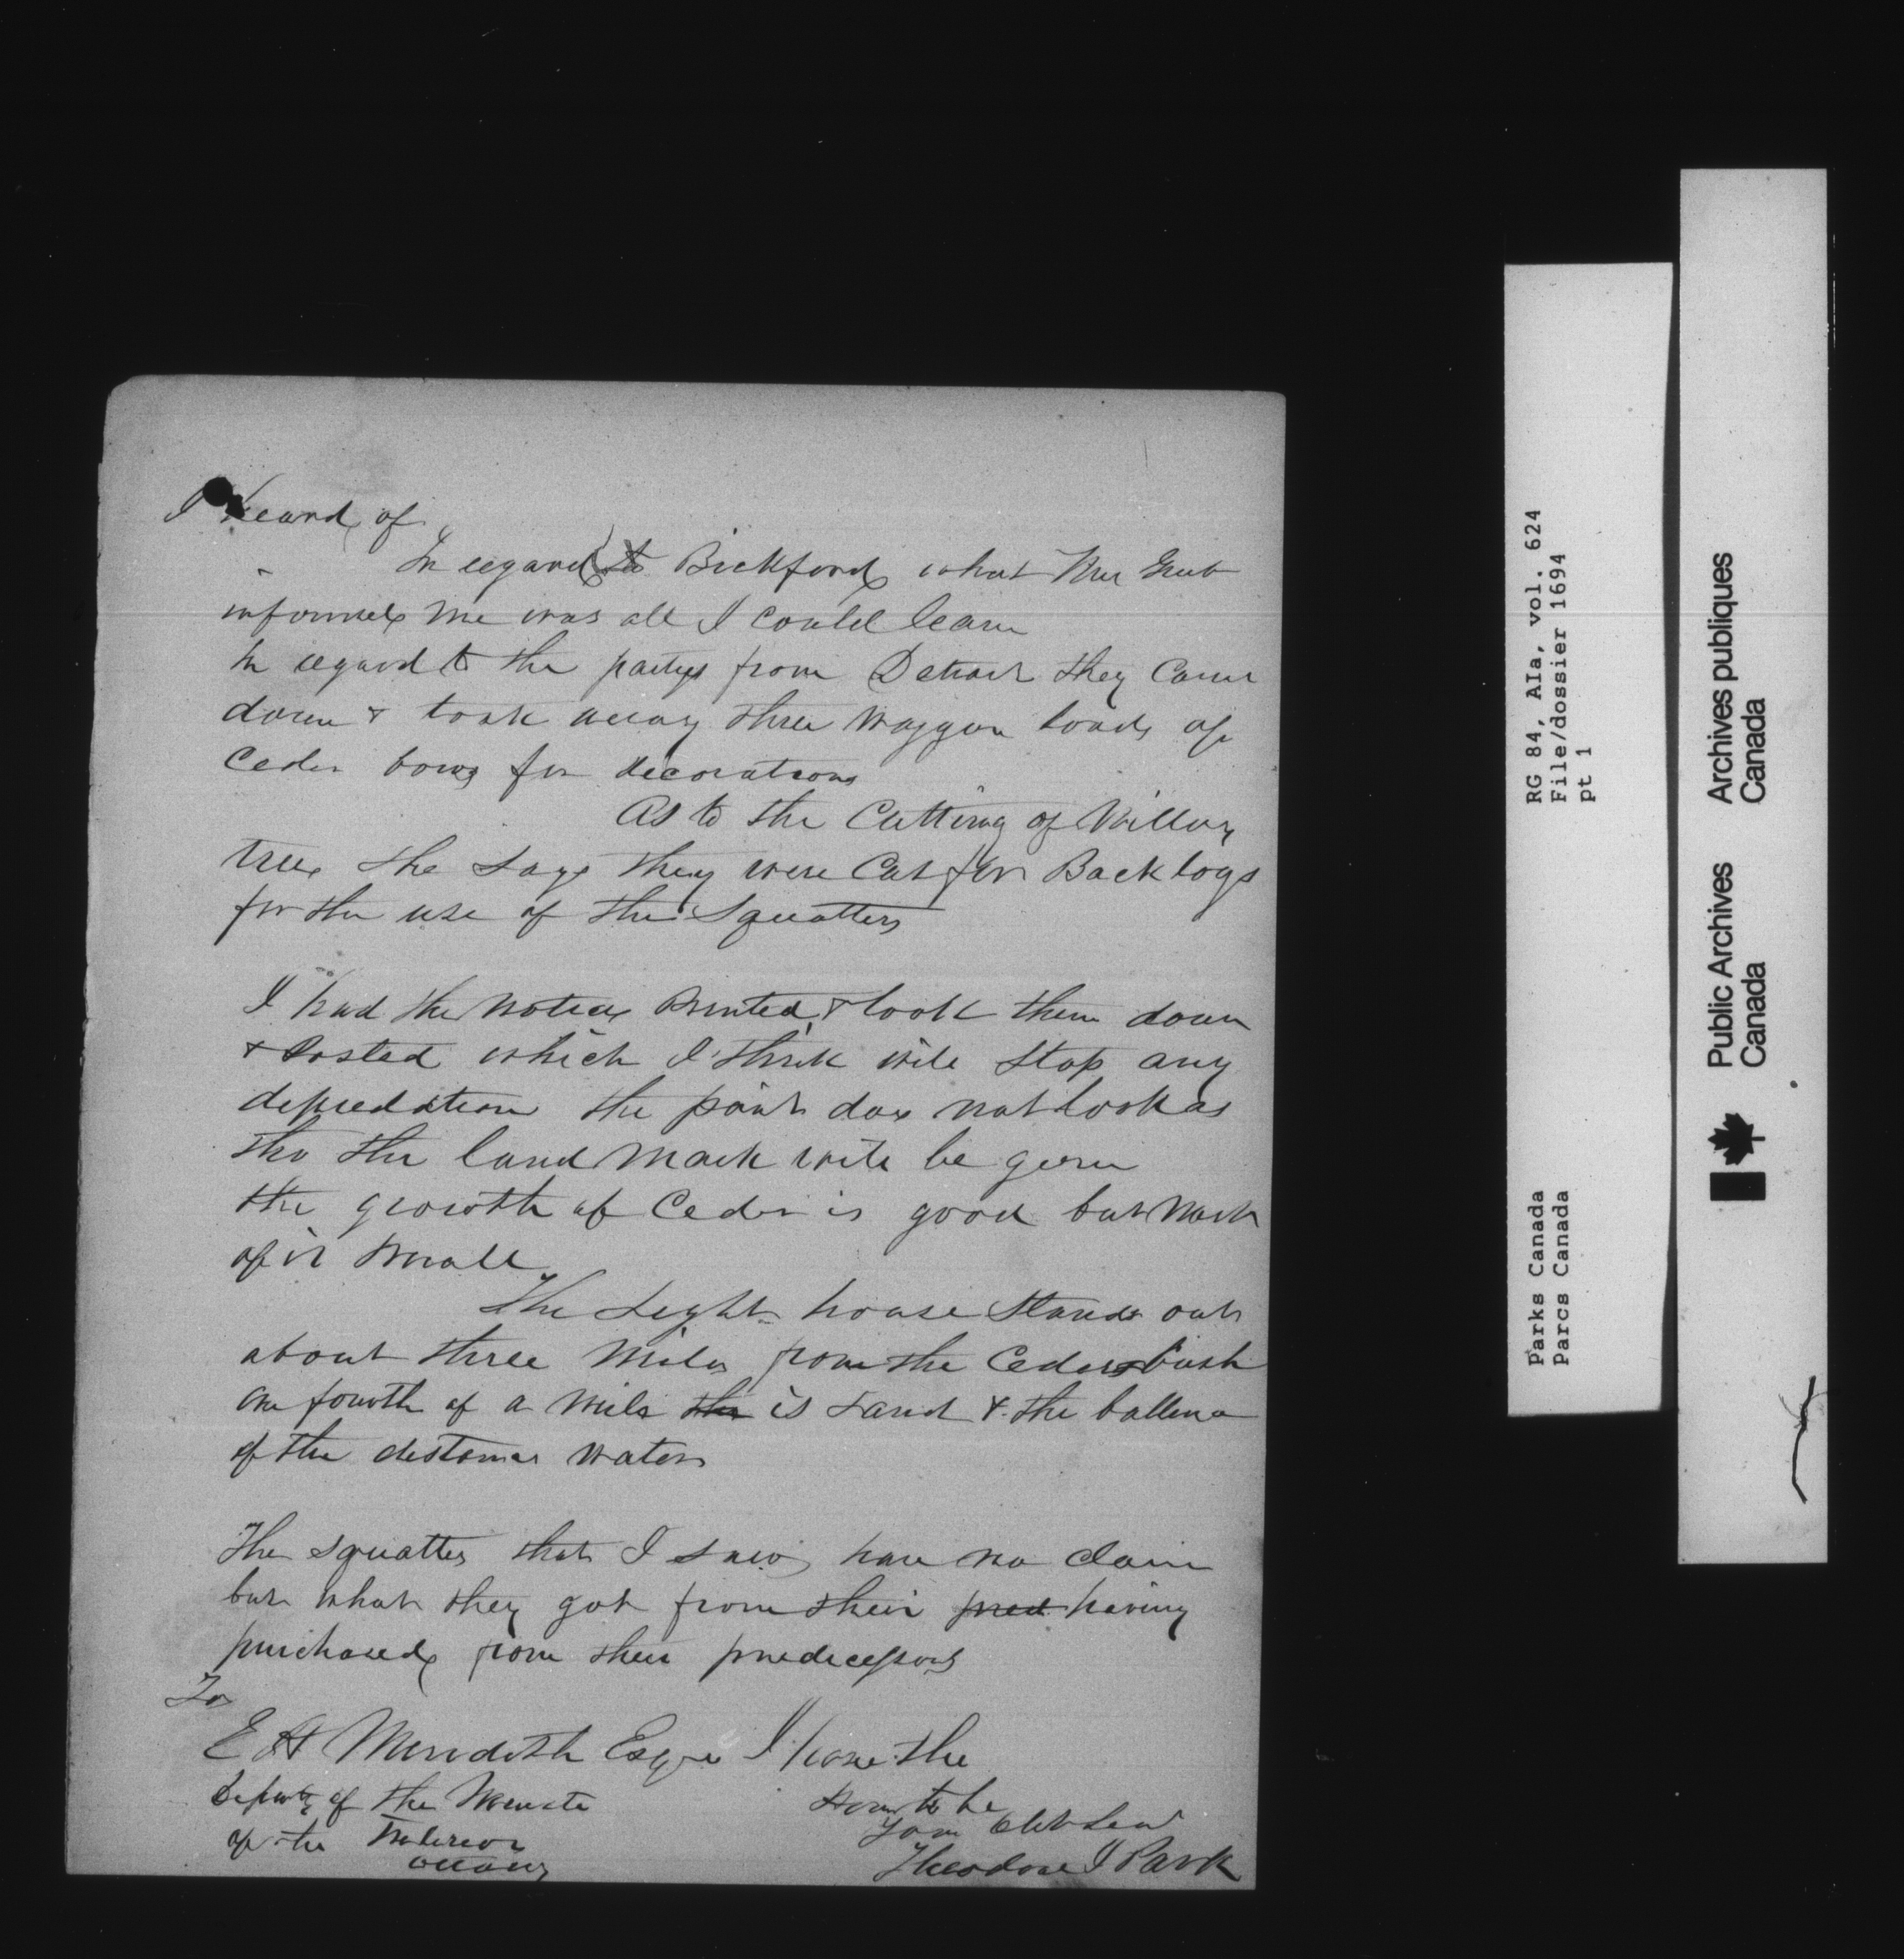 I heard of
In regard to Bickford what Mrs Grub
informed me was all I could learn
In regard to the partys from Detroit they Came
down & took away three Waggon loads of
Ceder bows for decorations
As to the Cutting of Willow
trees she says they were Cut for Back logs
for the use of the Squatters
I had the Notices Printed & took them down
& Posted which I think will Stop any
depredation the point does not look as
tho the land Mark will be given
the growth of Ceder is good but Most
of it Small
The Light house Stands out
about three Miles from the Ceder bush
one fourth of a Mile the is Sand & the ballence
of the distance Water
The Squatters that I saw have no claim
but what they got from their pred having
purchased from their predecessors
To
E A Meredith Esqre I have the
Deputy of the Minister
of the Interior
Ottawa
Honor to be
Your Obt Servt
Theodore J Park
RG 84, A1a, vol. 624
File/dossier 1694
pt 1
Parks Canada
Parcs Canada
Public Archives
Canada
Archives publiques
Canada